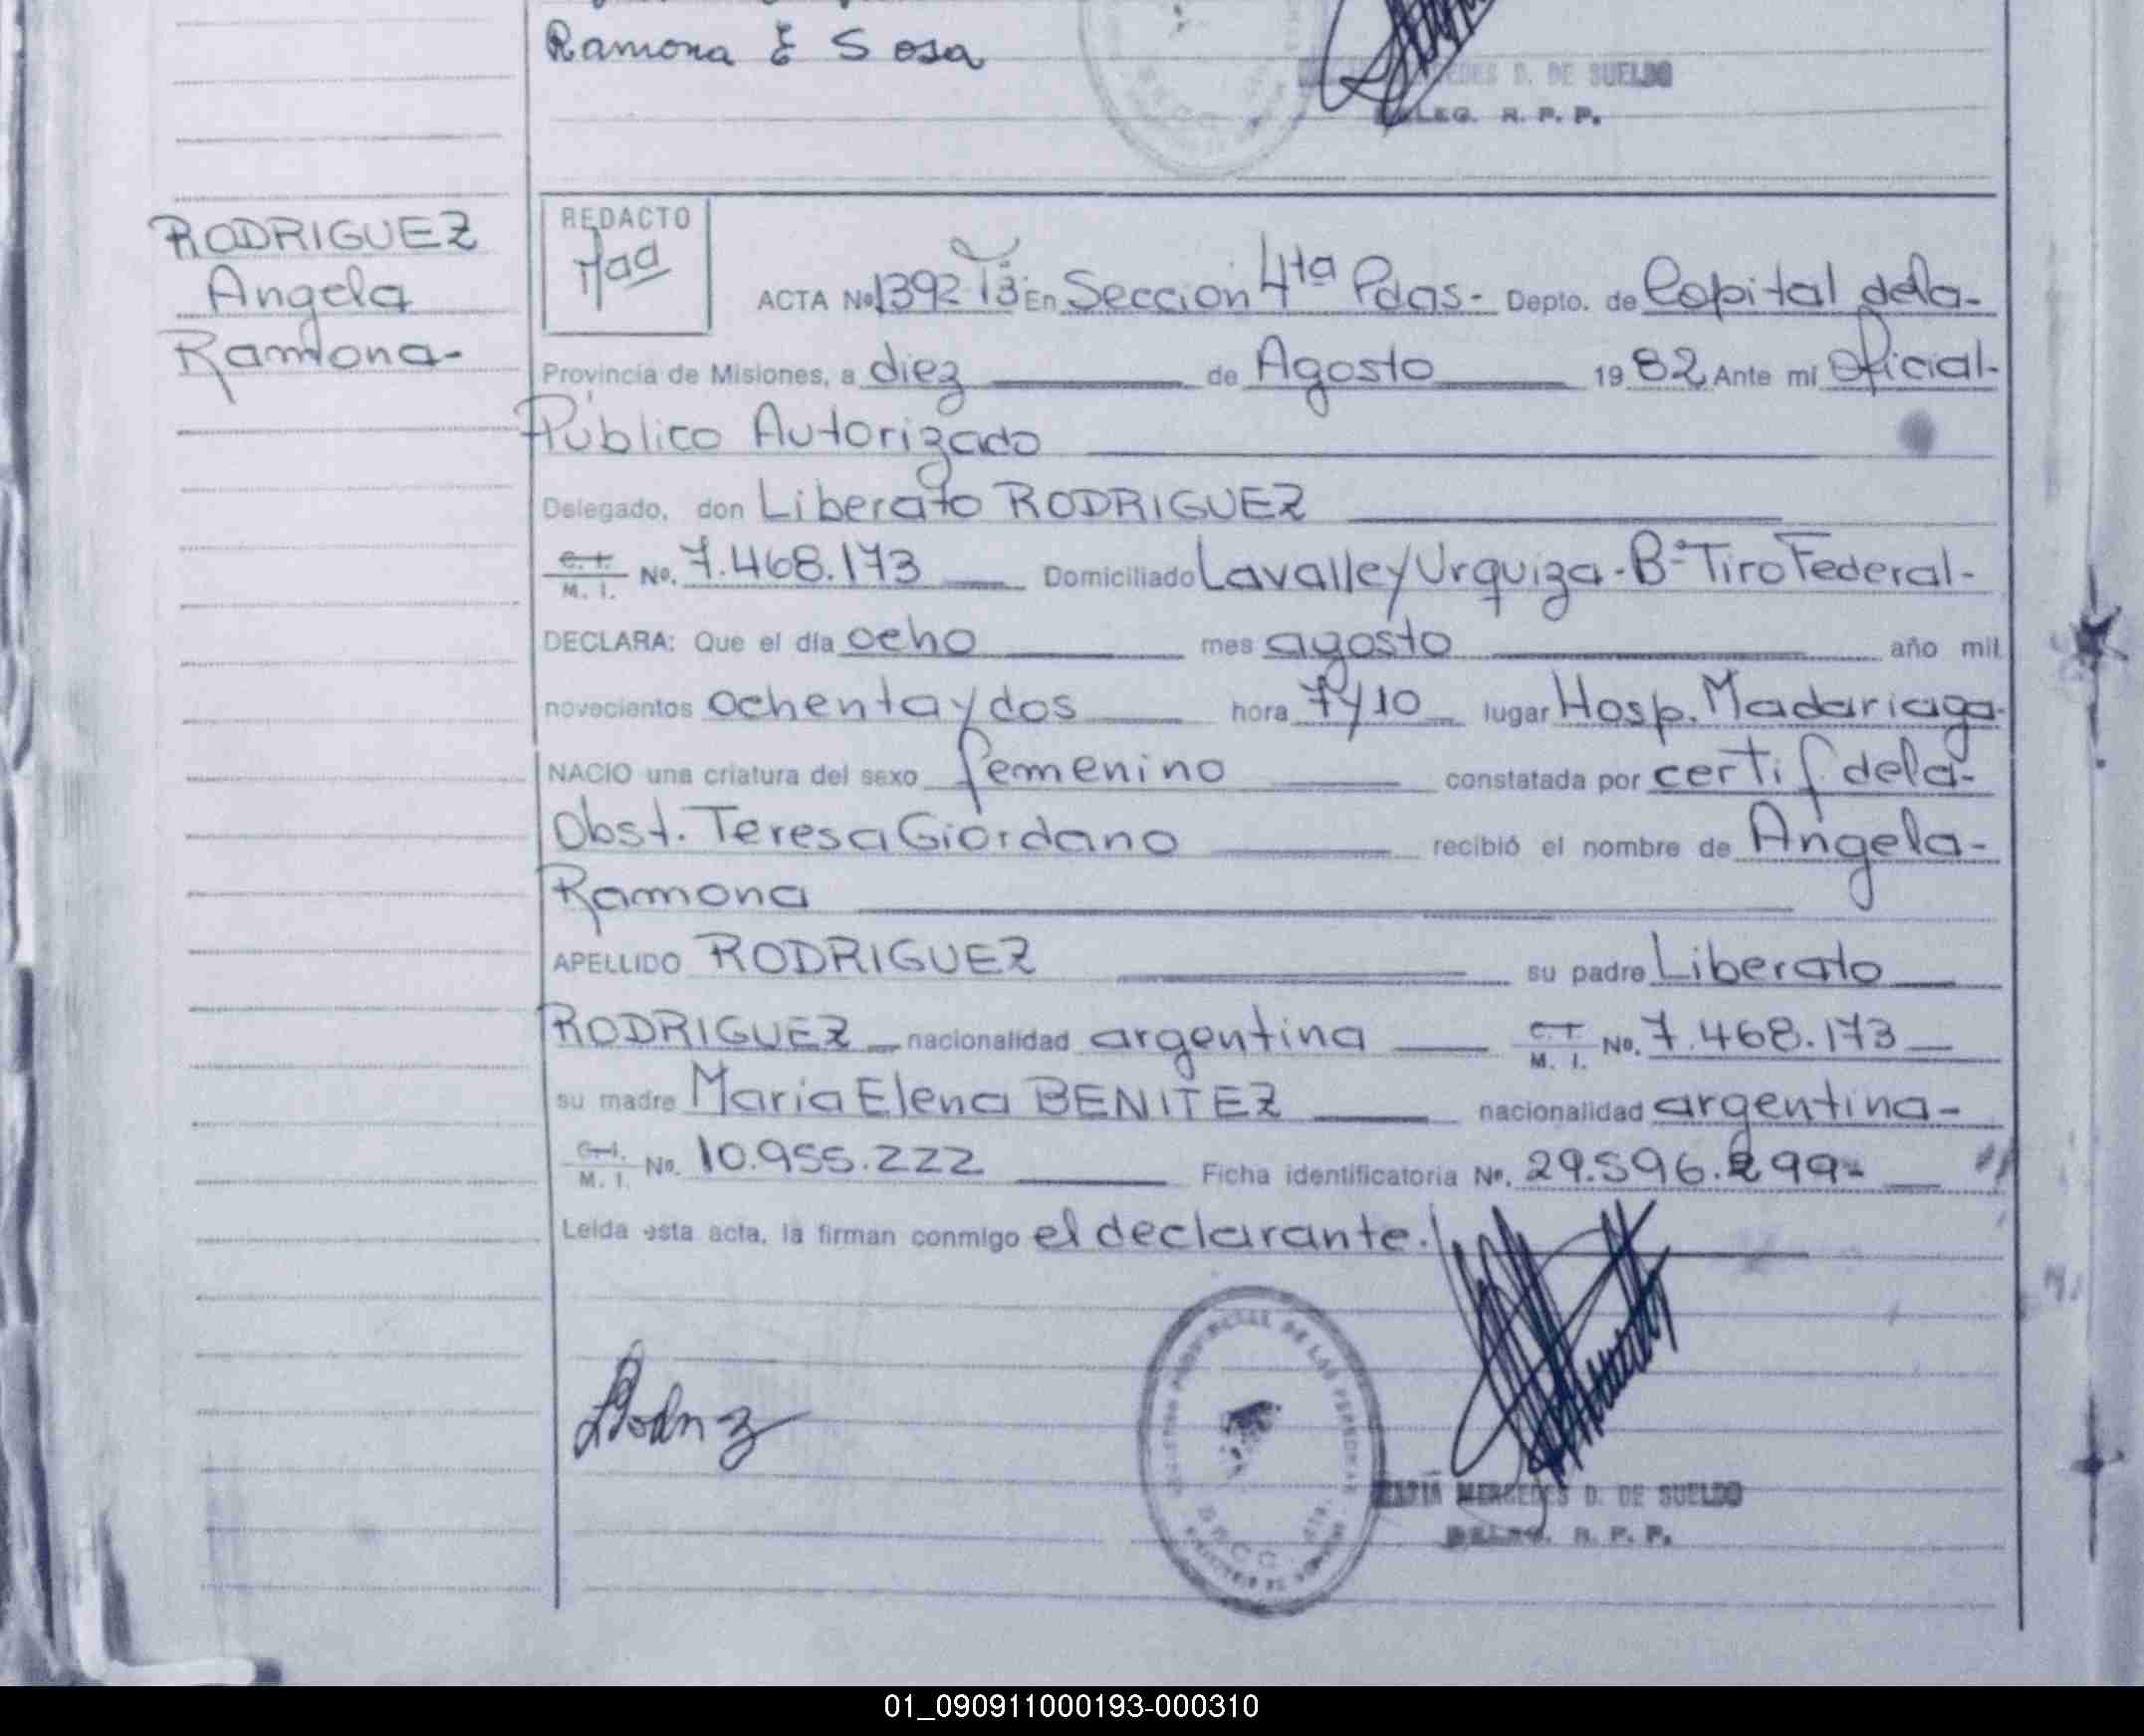 Ramona E Sosa
MERCEDES D. DE SUELDO
DELEG. R. P. P.
RODRIGUEZ
Angela
Ramona-
REDACTO
ACTA Nº 1392 T3 En Sección 4ta Pdas- Depto. de Capital dela-
Provincia de Misiones, a diez de Agosto 1982 Ante mi Oficial-
Público Autorizado
Delegado, don Liberato RODRIGUEZ
C. I. M. I. Nº. 7.468.173 Domiciliado Lavalle y Urquiza-Bº Tiro Federal-
DECLARA: Que el día ocho mes agosto año mil
novecientos ochenta y dos hora 7y10 lugar Hosp. Madariaga-
NACIO una criatura del sexo femenino constatada por certif. dela-
Obst. Teresa Giordano recibió el nombre de Angela-
Ramona
APELLIDO RODRIGUEZ su padre Liberato
RODRIGUEZ nacionalidad argentina C. I. M. I. Nº. 7.468.173
su madre Maria Elena BENITEZ nacionalidad argentina-
C. I. M. I. Nº. 10.955.222 Ficha identificatoria Nº. 29.596.299-
Leída esta acta, la firman conmigo el declarante.
REGISTRO PROVINCIAL DE LAS PERSONAS
MARIA MERCEDES D. DE SUELDO
DELEG. R. P. P.
01_090911000193-000310